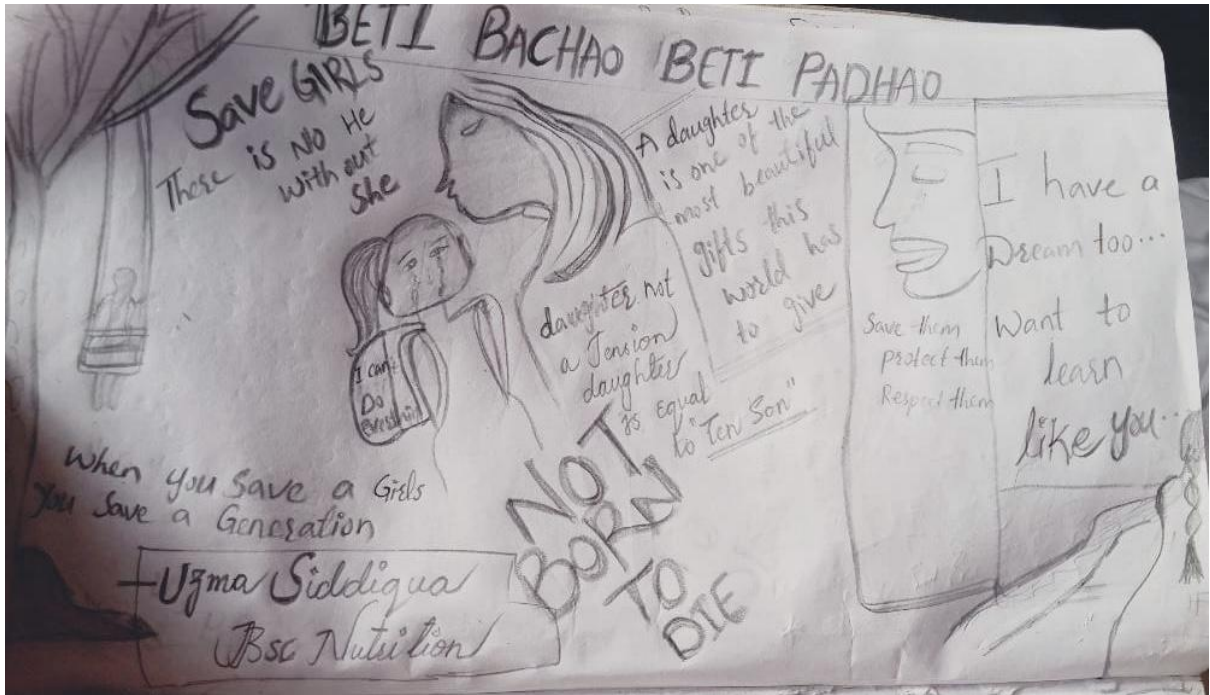 BETI BACHAO BETI PADHAO
Save GIRLS
There is No He
with out
She
A daughter
is one of the
most beautiful
gifts this
world has
to give
daughter not
a Tension
daughter
is equal
to "Ten Son"
I can
Do
NOT
BORN
TO
DIE
Save them
protect them
Respect them
I have a
Dream too...
Want to
learn
like you...
When you save a Girls
you save a Generation
Uzma Siddiqua
Bsc Nutrition